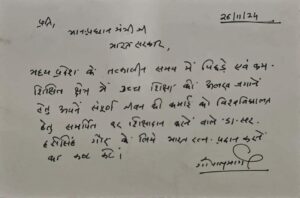 26/11/24
प्रति,
माननीय प्रधान मंत्री जी
भारत सरकार,
मध्य प्रदेश के तत्कालीन समय में पिछड़े एवं कम-
शिक्षित क्षेत्र में उच्च शिक्षा की अलख जगाने
हेतु अपने संपूर्ण जीवन की कमाई को विश्वविद्यालय
हेतु समर्पित कर शिक्षादान करने वाले डा. सर
हरीसिंह गौर के लिये भारत रत्न प्रदान करने
का कष्ट करें।